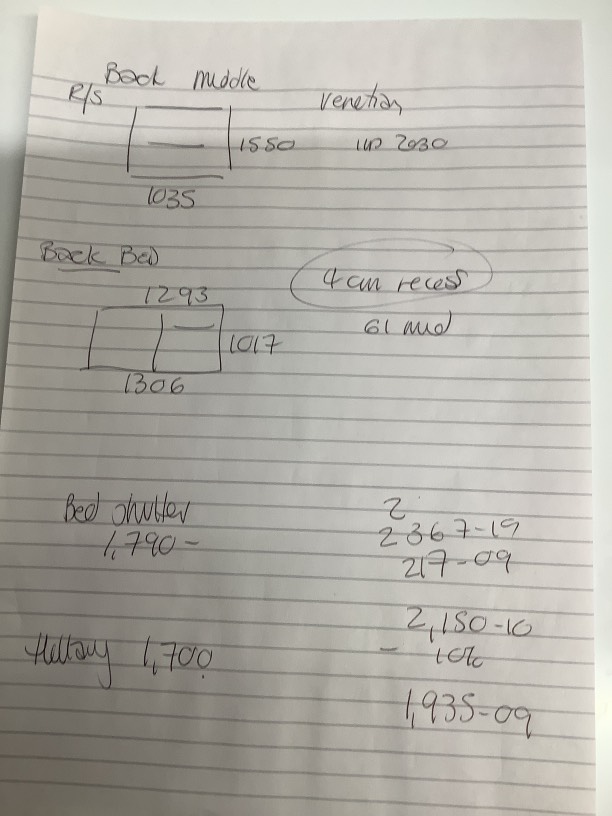 Back middle
R/S
Venetian
1550
up 2030
1035
Back Bed
1293
4 cm recess
61 mid
1017
1306
Bed shutter
1,790-
2
2367-19
217-09
2,150-10
- 10%
Hillary 1,700
1,935-09